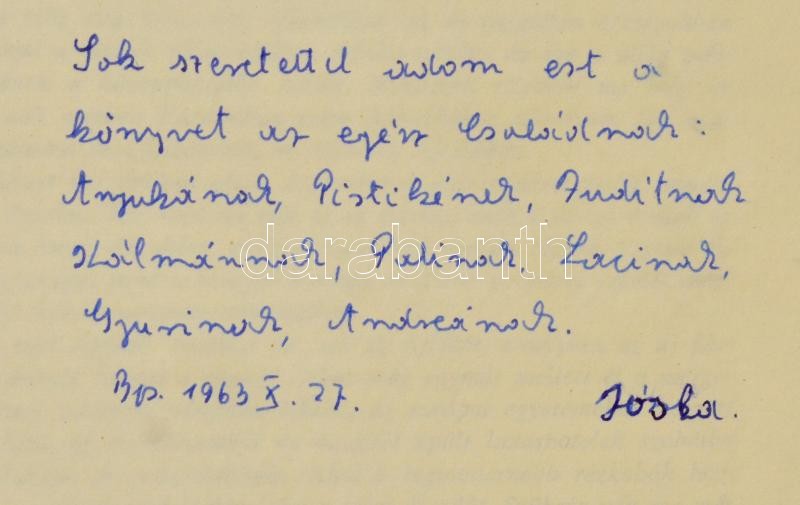 Sok szeretettel adom ezt a
könyvet az egész Családnak:
Anyukának, Pistikének, Juditnak
Kálmánnak, Palinak, Lacinak,
Gyurinak, Andreának.
Bp. 1963 X. 27.
Jóska.
darabanth